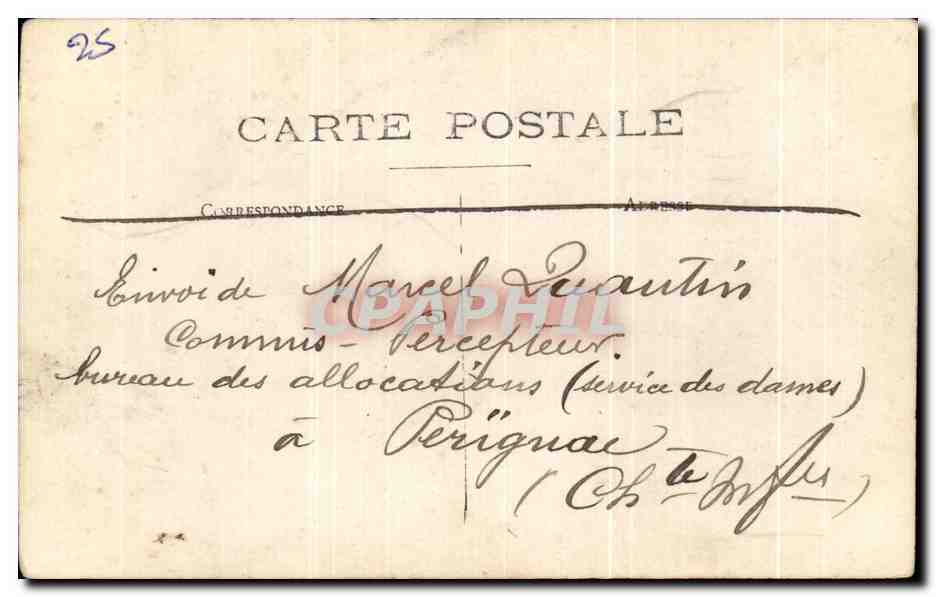 25
CARTE POSTALE
CORRESPONDANCE ADRESSE
Envoi de Marcel Quantin
Commis - Percepteur.
bureau des allocations (service des dames)
à Pérignac
(Ch te Inf res)
CPAPHIL